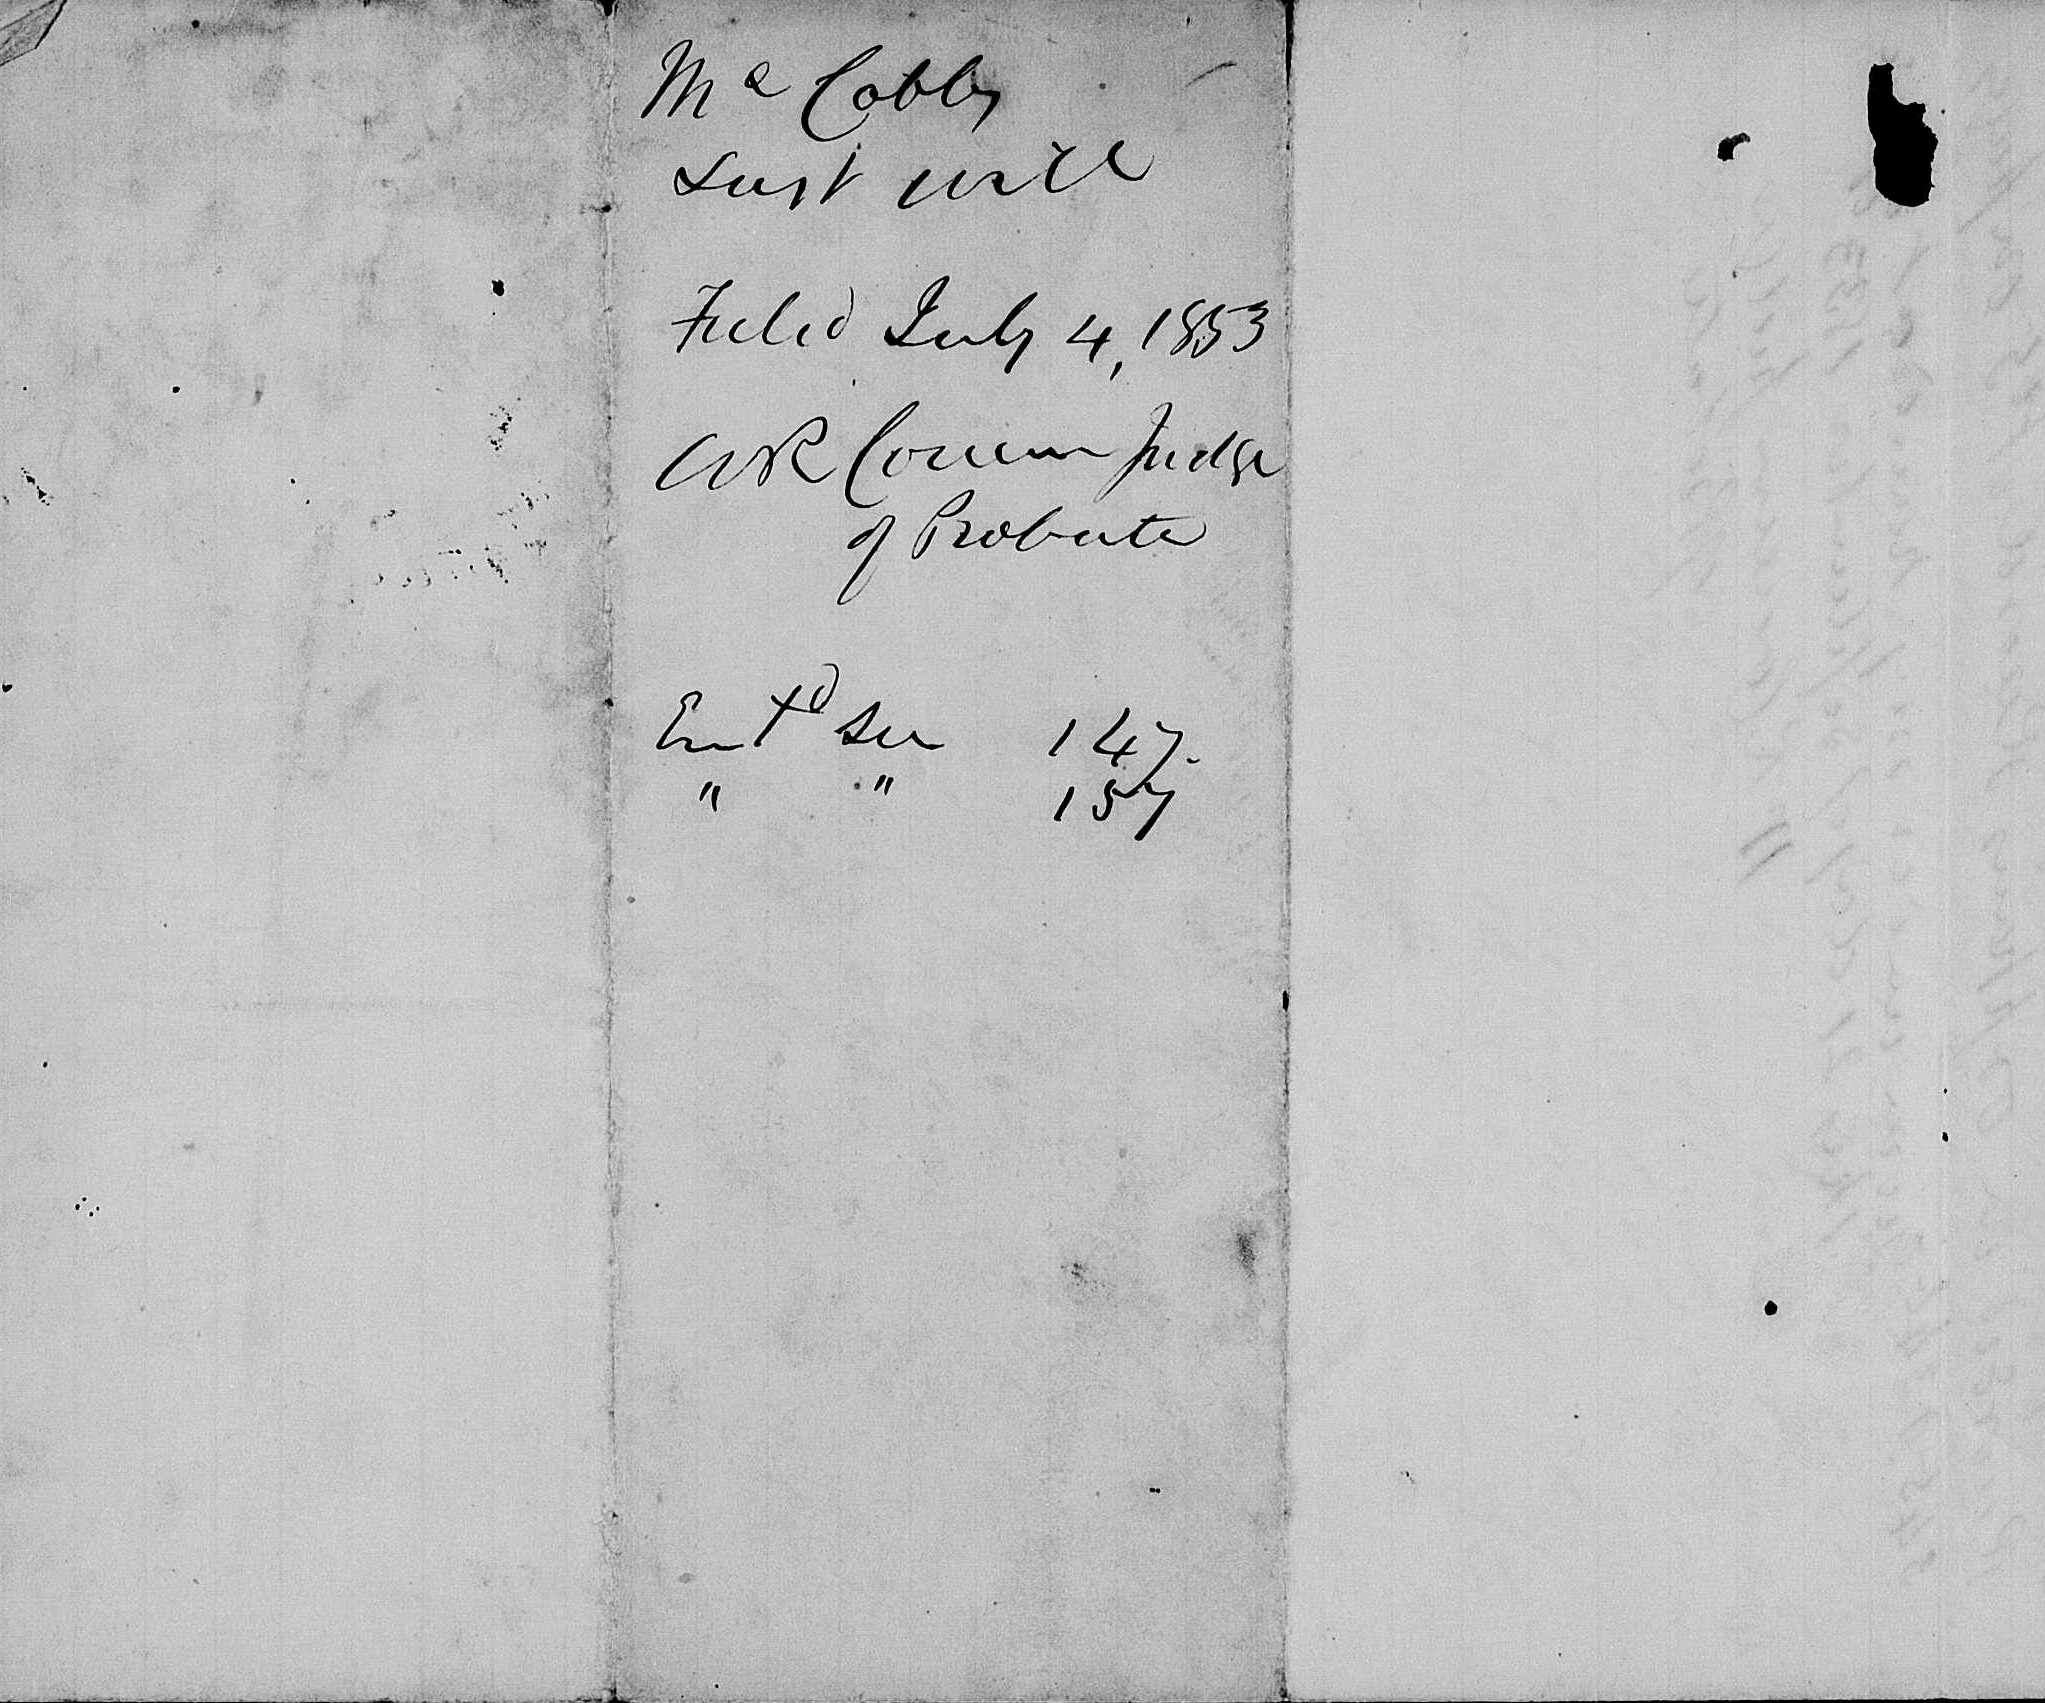 Mc Cobbs
Last will
Filed July 4, 1853
W R Cowan Judge
of Probate
Entd see 147.
" " 157